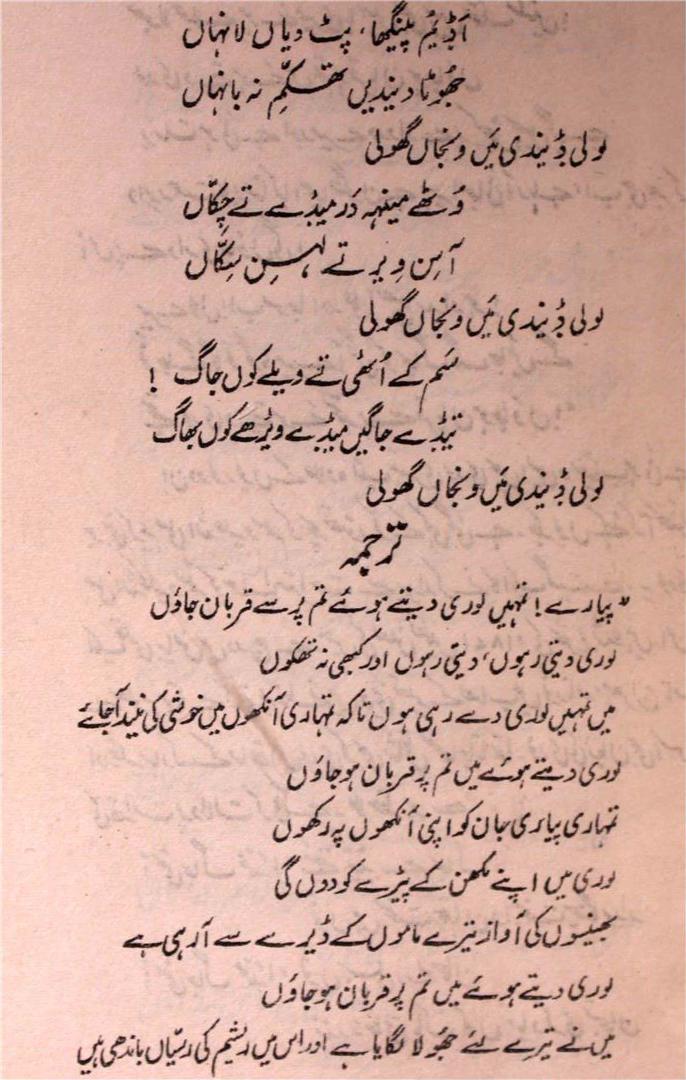 اَڈیُم پینگھا، پٹ دیاں لانہاں
جھُوٹا دیندیں تھکّمِ نہ بانہاں
لولی ڈیندی مَیں ونجاں گھولی
وُٹھے مینہہ دَر میڈے تے چِکّاں
آہِن وِیر تے لہسِن سِکّاں
لولی ڈیندی مَیں ونجاں گھولی
سَم کے اُٹھی تے ویلے کوں جاگ !
تیڈے جاگیں میڈے ویڑھے کوں بھاگ
لولی ڈیندی مَیں ونجاں گھولی
ترجمہ
”پیارے! تمہیں لوری دیتے ہوئے تم پر سے قربان جاؤں
لوری دیتی رہوں، دیتی رہوں اور کبھی نہ تھکوں
میں تمہیں لوری دے رہی ہوں تاکہ تمہاری آنکھوں میں خوشی کی نیند آجائے
لوری دیتے ہوئے میں تم پر قربان ہو جاؤں
تمہاری پیاری جان کو اپنی آنکھوں پہ رکھوں
لوری میں اپنے مکھن کے پیڑے کو دوں گی
بھینسوں کی آواز تیرے ماموں کے ڈیرے سے آ رہی ہے
لوری دیتے ہوئے میں تم پر قربان ہو جاؤں
میں نے تیرے لئے جھُولا لگایا ہے اور اس میں ریشم کی رسّیاں باندھی ہیں